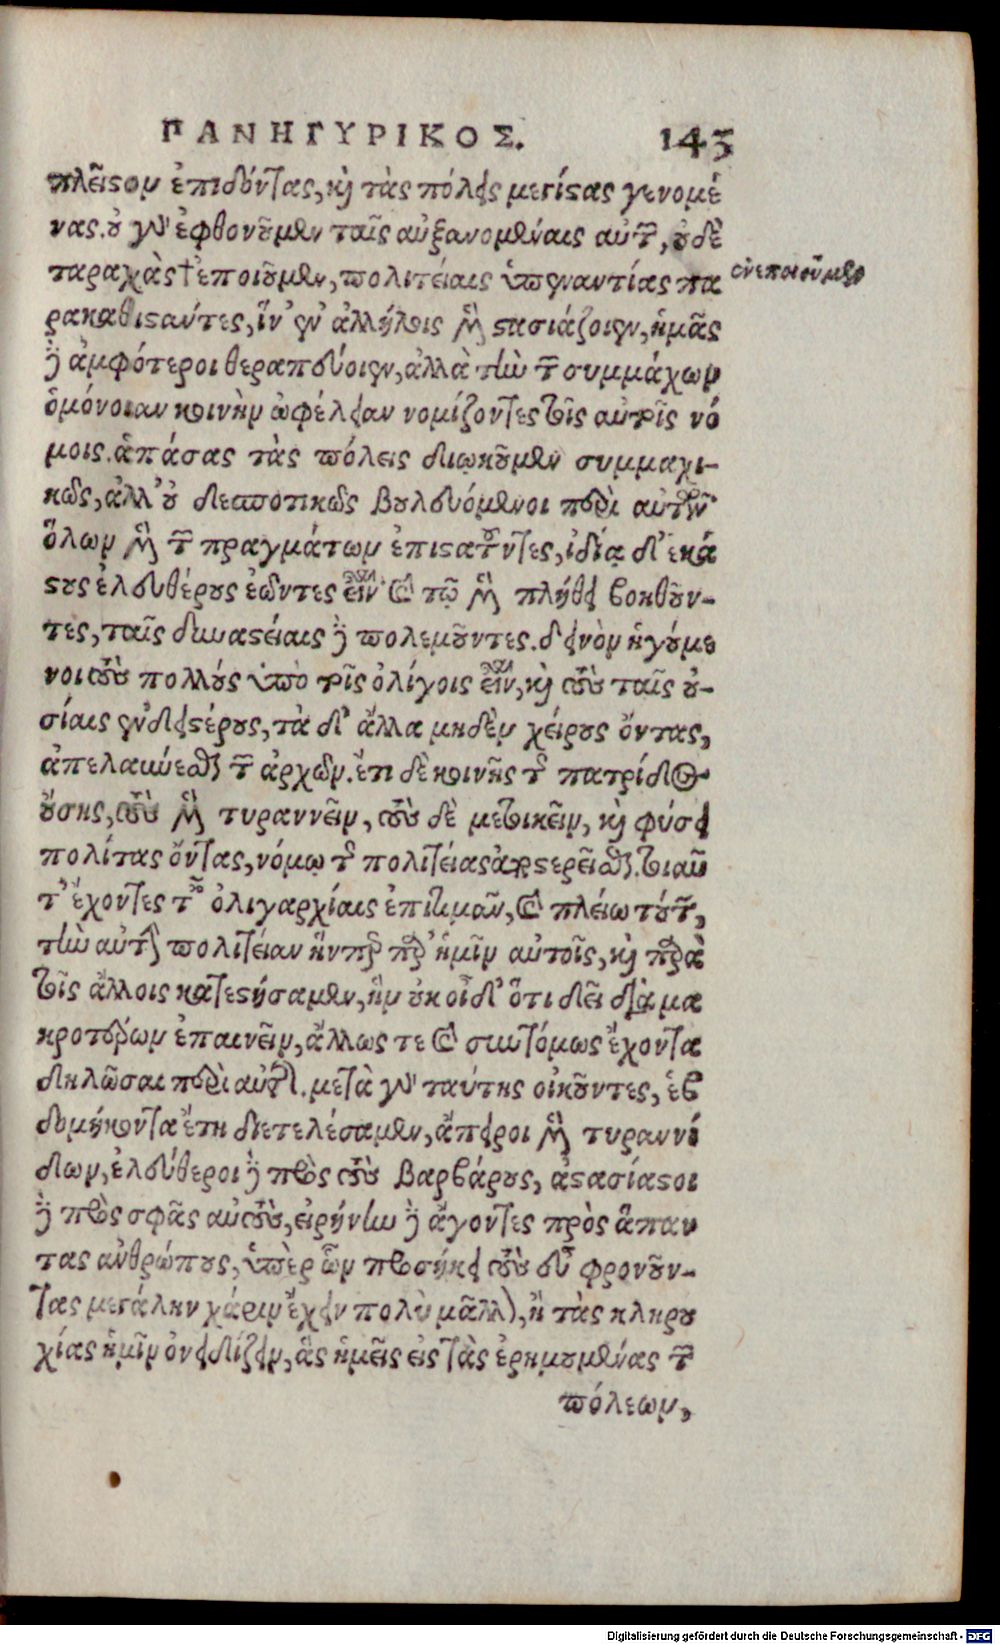 ΠΑΝΗΓΥΡΙΚΟΣ. 145
πλεῖστον ἐπιδόντας, καὶ τὰς πόλεις μεγίστας γενομέ
νας. οὐ γὰρ ἐφθονοῦμεν ταῖς αὐξανομέναις αὐτῶν, οὐδὲ
ταραχὰς †ἐποιοῦμεν, πολιτείαις ὑπεναντίας πα
ρακαθιστάντες, ἵν' ἐν ἀλλήλοις μὲν στασιάζοιεν, ἡμᾶς
δὲ ἀμφότεροι θεραπεύοιεν, ἀλλὰ τὴν τῶν συμμάχων
ὁμόνοιαν κοινὴν ὠφέλειαν νομίζοντες τοῖς αὐτοῖς νό
μοις. ἁπάσας τὰς πόλεις διῳκοῦμεν συμμαχι-
κῶς, ἀλλ' οὐ δεσποτικῶς βουλευόμενοι περὶ αὐτῶν
ὅλων μὲν τῶν πραγμάτων ἐπιστατοῦντες, ἰδίᾳ δ' ἑκά
στους ἐλευθέρους ἐῶντες εἶναι καὶ τῷ μὲν πλήθει βοηθοῦν-
τες, ταῖς δυναστείαις δὲ πολεμοῦντες. δεινὸν ἡγούμε
νοι τοὺς πολλοὺς ὑπὸ τοῖς ὀλίγοις εἶναι, καὶ τοὺς ταῖς οὐ-
σίαις ἐνδεεστέρους, τὰ δ' ἄλλα μηδὲν χείρους ὄντας,
ἀπελαύνεσθαι τῶν ἀρχῶν. ἔτι δὲ κοινῆς τῆς πατρίδος
οὔσης, τοὺς μὲν τυραννεῖν, τοὺς δὲ μετοικεῖν, καὶ φύσει
πολίτας ὄντας, νόμῳ τῆς πολιτείας ἀποστερεῖσθαι. τοιαῦ
τ' ἔχοντες ταῖς ὀλιγαρχίαις ἐπιτιμᾶν, καὶ πλείω τούτων,
τὴν αὐτὴν πολιτείαν ἥνπερ παρ' ἡμῖν αὐτοῖς, καὶ παρὰ
τοῖς ἄλλοις κατεστήσαμεν, ἣν οὐκ οἶδ' ὅτι δεῖ διὰ μα
κροτέρων ἐπαινεῖν, ἄλλως τε καὶ συντόμως ἔχοντα
δηλῶσαι περὶ αὐτῆς. μετὰ γὰρ ταύτης οἰκοῦντες, ἑβ
δομήκοντα ἔτη διετελέσαμεν, ἄπειροι μὲν τυραννί
δων, ἐλεύθεροι δὲ πρὸς τοὺς βαρβάρους, ἀστασίαστοι
δὲ πρὸς σφᾶς αὐτούς, εἰρήνην δὲ ἄγοντες πρὸς ἅπαν
τας ἀνθρώπους, ὑπὲρ ὧν προσήκει τοὺς εὖ φρονοῦν-
τας μεγάλην χάριν ἔχειν πολὺ μᾶλλον, ἢ τὰς κληρου
χίας ἡμῖν ὀνειδίζειν, ἃς ἡμεῖς εἰς τὰς ἐρημουμένας τῶν
πόλεων,
ἐνεποιοῦμεν